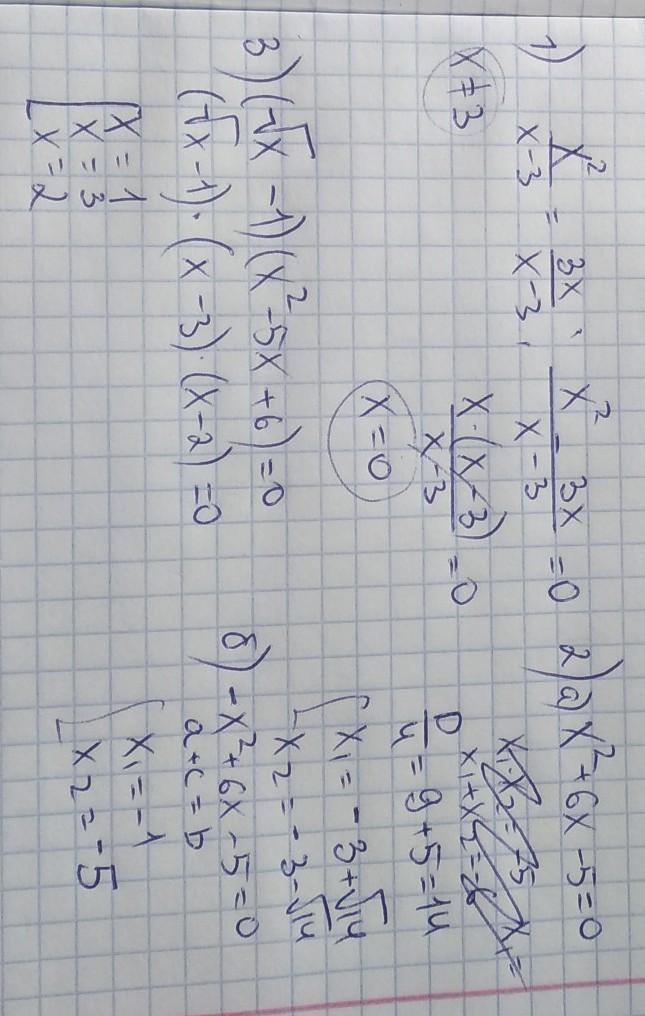 1) x²/(x-3) = 3x/(x-3), (x² - 3x)/(x-3) = 0
x ≠ 3
x·(x-3)/(x-3) = 0
x = 0
2) а) x² + 6x - 5 = 0
x₁·x₂ = -5 x₁ =
x₁ + x₂ = -6
D/4 = 9 + 5 = 14
[ x₁ = -3 + √14
x₂ = -3 - √14
б) -x² + 6x - 5 = 0
a + c = b
[ x₁ = -1
x₂ = -5
3) (√x - 1)(x² - 5x + 6) = 0
(√x - 1)·(x - 3)·(x - 2) = 0
[ x = 1
x = 3
x = 2